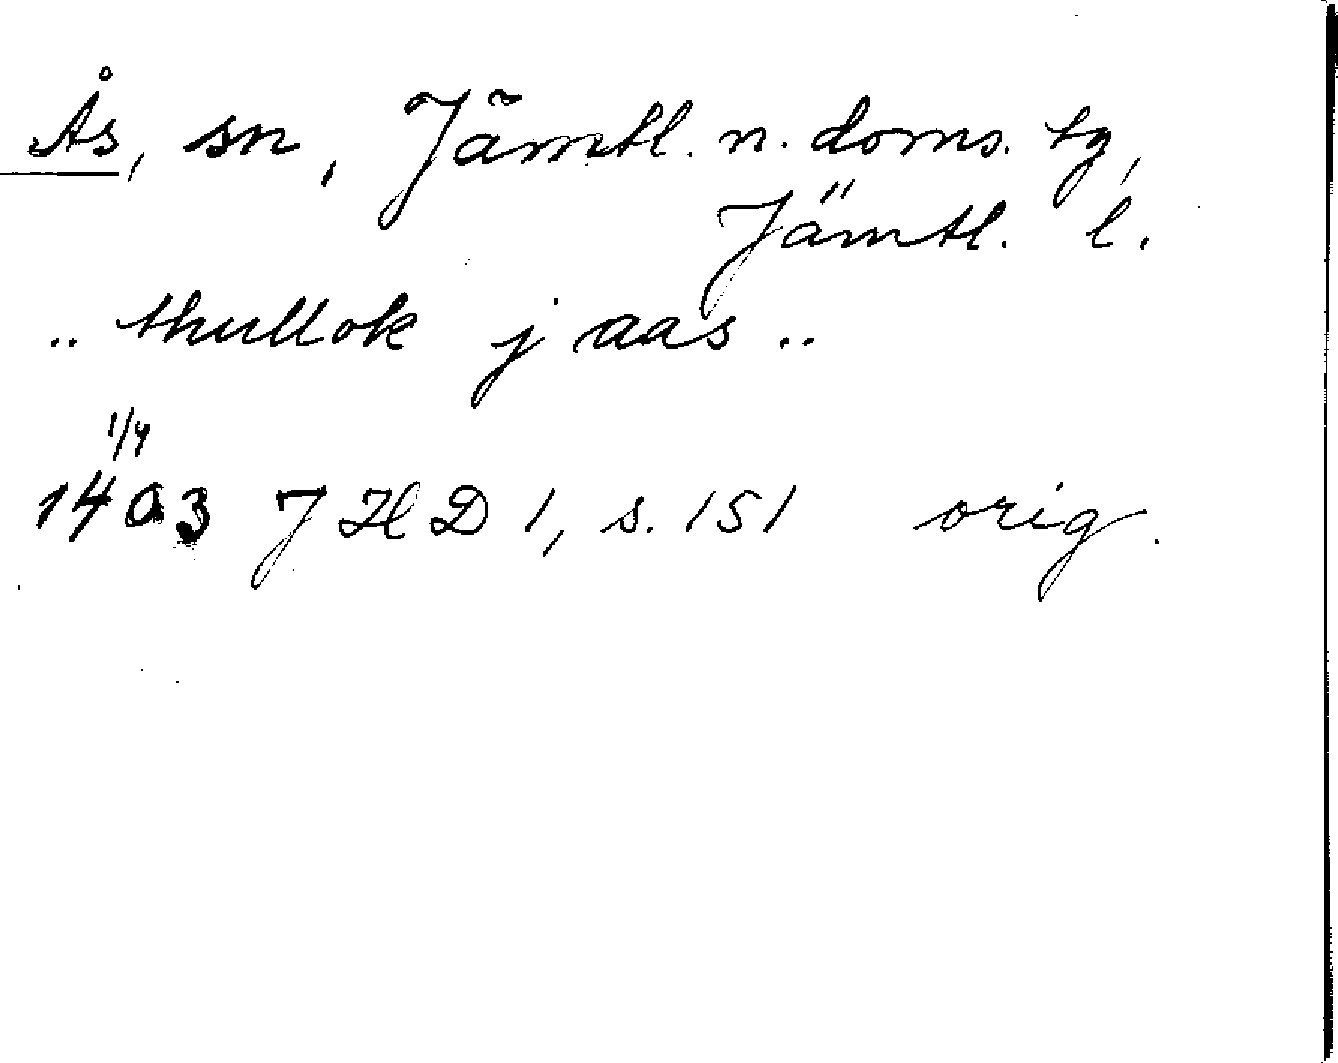 Ås, sn, Jämtl. n. doms. tg,
Jämtl. l.
.. thullok j aas ..
1/4
1403 JHD 1, s. 151 orig.